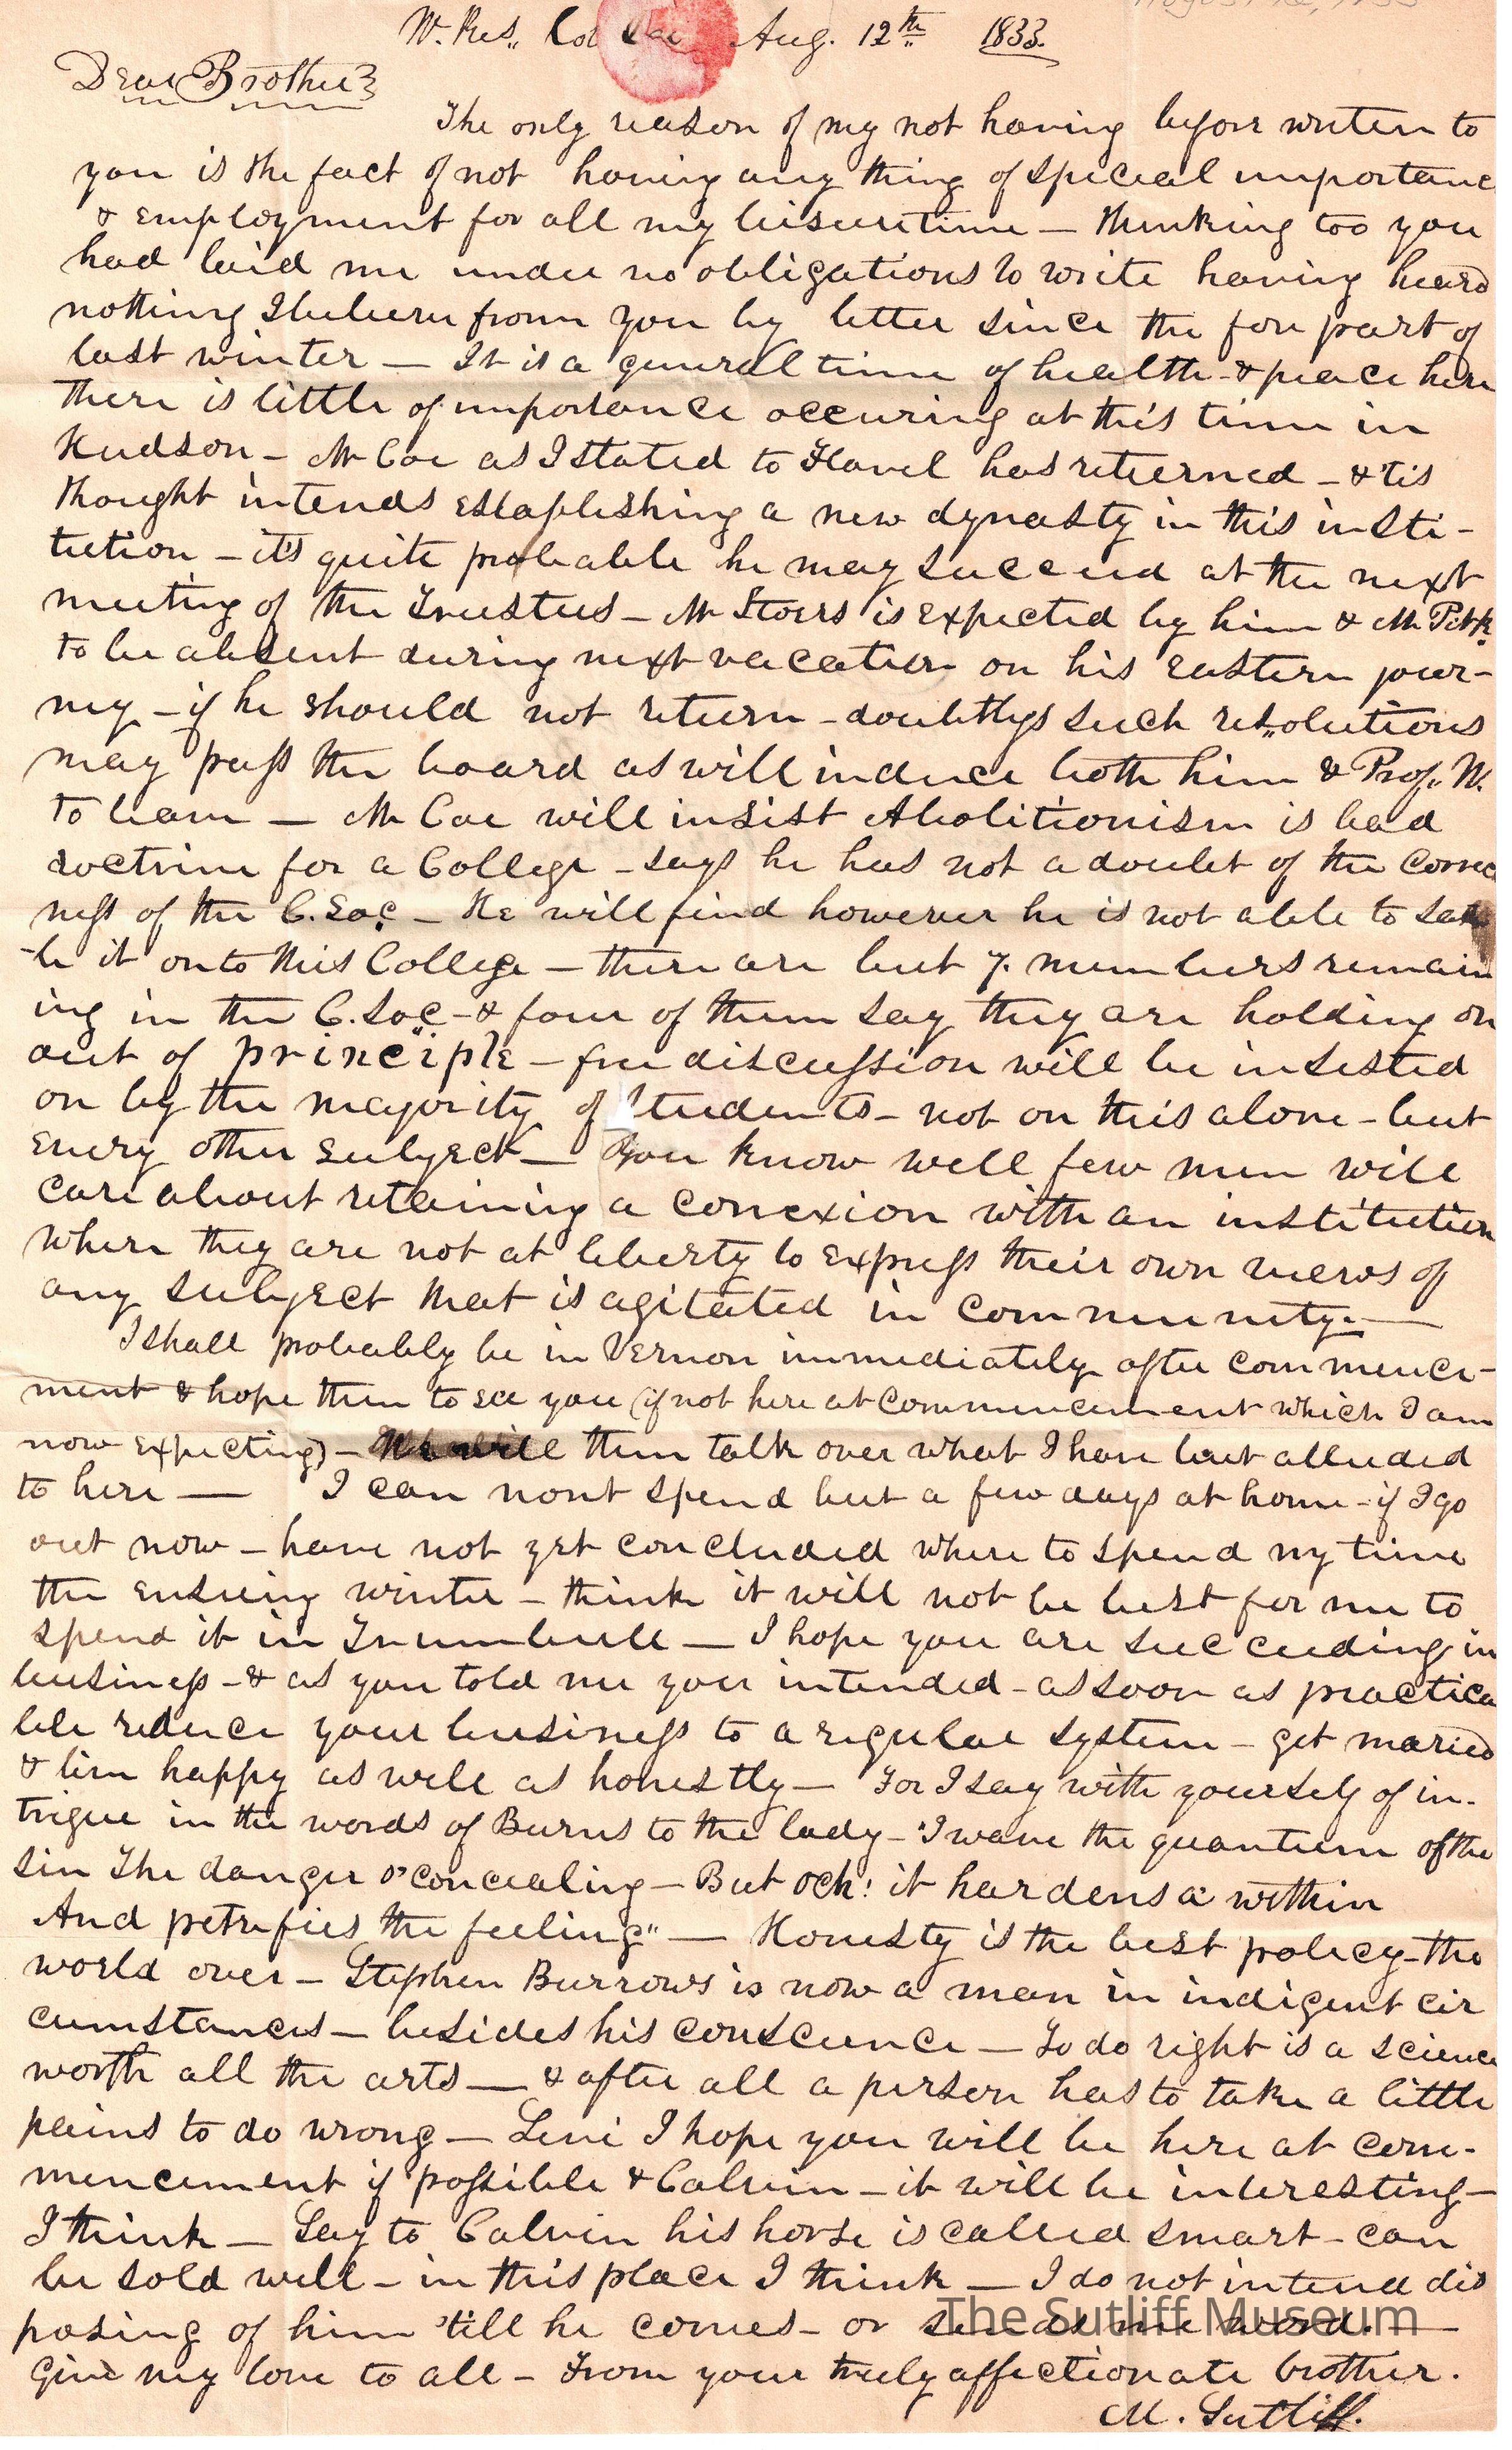 W. Res,, Col Aug. 12th 1833.
Dear Brother
The only reason of my not having before writen to
you is the fact of not having any thing of special importanc
& employment for all my leisure time — thinking too you
had laid me under no obligations to write having heard
nothing I believe from you by letter since the fore part of
last winter — It is a general time of health - & peace here
There is little of importance occuring at this time in
Hudson - Mr Coe as I stated to Flavel has returned - & 'tis
thought intends establishing a new dynasty in this insti-
tution - its quite probable he may succeed at the next
meeting of the Trustees - Mr Storrs is expected by him & Mr Pitk.
to be absent during next vacation on his eastern jour-
ney - if he should not return - doubtless such resolutions
may pass the board as will induce both him & Prof. W.
to leave — Mr Coe will insist Abolitionism is bad
doctrine for a College - says he has not a doubt of the Correc
ness of the C. Soc - He will find however he is not able to
-le it onto this College — there are but 7. members remain
ing in the C. Soc - & four of them say they are holding on
out of principle - free discussion will be insisted
on by the majority of Students - not on this alone - but
every other subject — You know well few men will
care about retaining a conexion with an institution
where they are not at liberty to express their own views of
any subject that is agitated in community. —
I shall probably be in Vernon immediately after commence-
ment & hope then to see you (if not here at Commencement which I am
now expecting) - We will then talk over what I have but alluded
to here — I can nont spend but a few days at home - if I go
out now - have not yet concluded where to spend my time
the ensuing winter - think it will not be best for me to
spend it in Trumbull — I hope you are succeeding in
business - & as you told me you intended - as soon as practica
ble reduce your business to a regular system - get maried
& live happy as well as honestly — For I say with yourself of in-
trigue in the words of Burns to the lady - "I wave the quantum of the
sin The danger o' concealing — But och! it hardens a' within
And petrifies the feeling" — Honesty is the best policy - the
world over - Stephen Burrows is now a man in indigent cir
cumstances - besides his conscience — To do right is a science
worth all the arts — & after all a person has to take a little
pains to do wrong — Levi I hope you will be here at com-
mencement if possible & Calvin - it will be interesting —
I think — Say to Calvin his horse is called smart - can
be sold well - in this place I think — I do not intend dis
posing of him 'till he comes - or sends me word. —
Give my love to all - From your truly affectionate brother.
M. Sutliff.
The Sutliff Museum